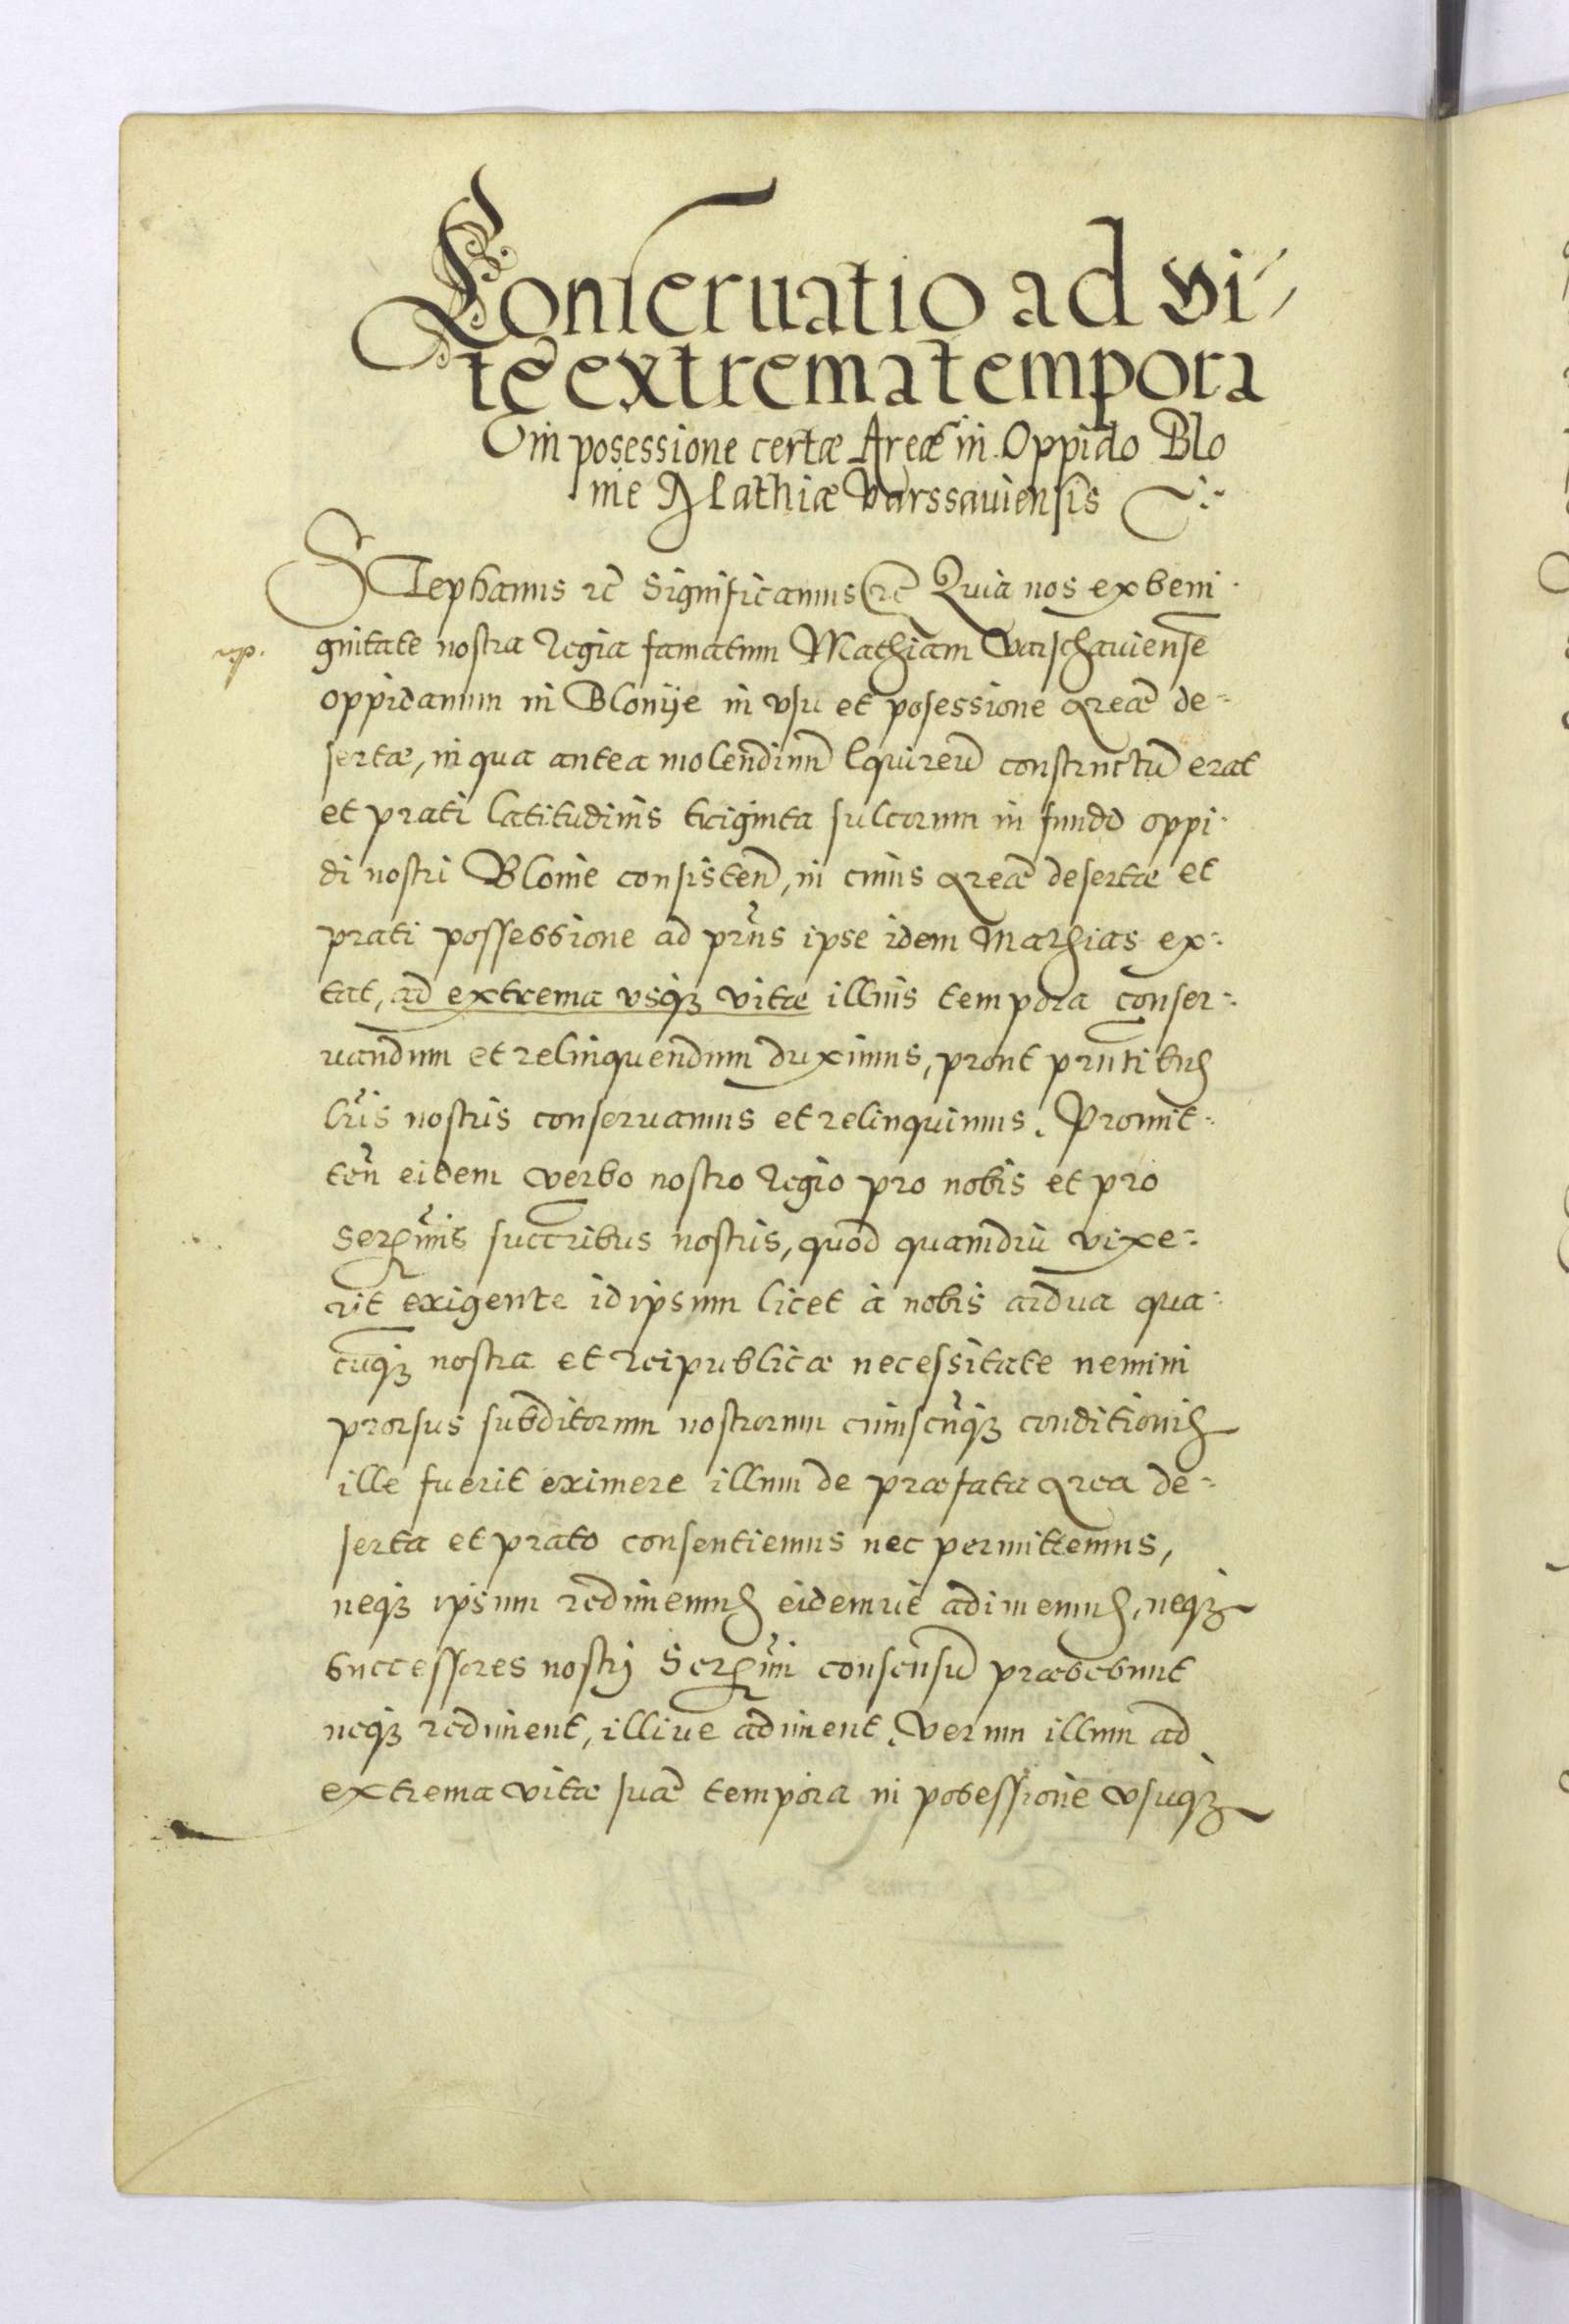 Conseruatio ad vi-
tæ extrema tempora
in posessione certæ Areæ in Oppido Blo
nie Mathiæ Varssauiensis
Stephanus etc Significamus etc Quia nos ex beni-
gnitate nostra Regia famatum Mathiam Varschauiense
oppidanum in Blonije in vsu et posessione Areæ de-
sertæ, in qua antea molendinũ Equireũ constructũ erat
et prati latitudinis triginta sulcorum in fundo oppi-
di nostri Blonie consisteñ, in cuius Areæ desertæ et
prati possessione ad prñs ipse idem Mathias ex-
tat, ad extrema vsqȝ vitæ illius tempora conser-
uandum et relinquendum duximus, prout prñtibus
lr̃is nostris conseruamus et relinquimus. Promit-
teñ eidem verbo nostro Regio pro nobis et pro
Serẽmis succribus nostris, quod quamdiu vixe-
rit exigente id ipsum licet à nobis ardua qua-
cũqȝ nostra et Reipublicæ necessitate nemini
prorsus subditorum nostrorum cuiuscũqȝ conditionis
ille fuerit eximere illum de præfata Area de-
serta et prato consentiemus nec permittemus,
neqȝ ipsum redimemus eidemue adimemus, neqȝ
successores nostrj Serẽmi consensũ præbebunt
neqȝ rediment, illiue adiment. Verum illum ad
extrema vitæ suæ tempora in posessione vsuqȝ